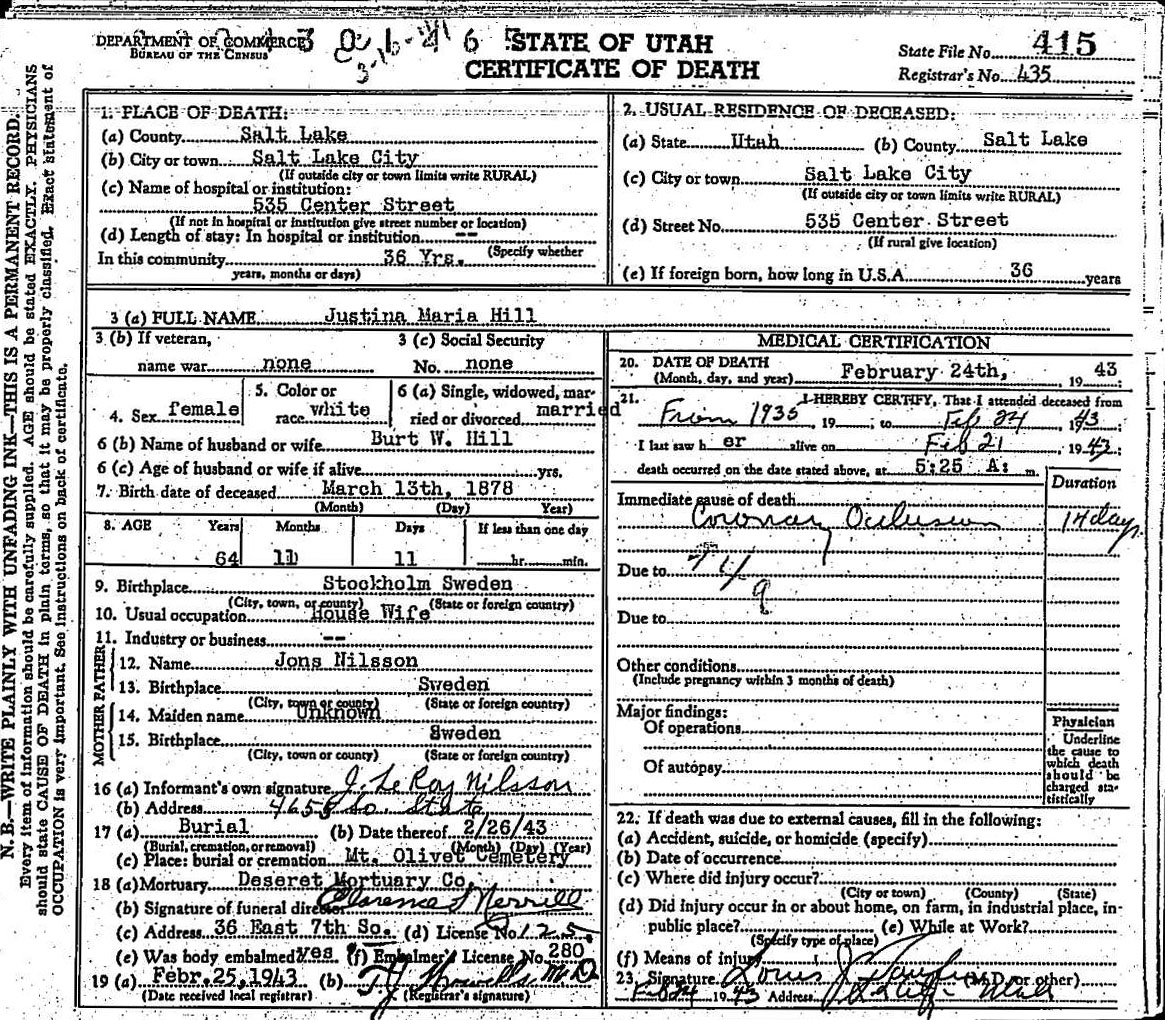 DEPARTMENT OF COMMERCE
BUREAU OF THE CENSUS
STATE OF UTAH
CERTIFICATE OF DEATH
State File No. 415
Registrar's No. 435
N. B.—WRITE PLAINLY WITH UNFADING INK—THIS IS A PERMANENT RECORD.
Every item of information should be carefully supplied. AGE should be stated EXACTLY. PHYSICIANS
should state CAUSE OF DEATH in plain terms, so that it may be properly classified. Exact statement of
OCCUPATION is very important. See instructions on back of certificate.
1. PLACE OF DEATH:
(a) County Salt Lake
(b) City or town Salt Lake City
(If outside city or town limits write RURAL)
(c) Name of hospital or institution:
535 Center Street
(If not in hospital or institution give street number or location)
(d) Length of stay: In hospital or institution --
(Specify whether
In this community 36 Yrs.
years, months or days)
2. USUAL RESIDENCE OF DECEASED:
(a) State Utah (b) County Salt Lake
(c) City or town Salt Lake City
(If outside city or town limits write RURAL)
(d) Street No. 535 Center Street
(If rural give location)
(e) If foreign born, how long in U.S.A. 36 years
3 (a) FULL NAME Justina Maria Hill
3 (b) If veteran, 3 (c) Social Security
name war none No. none
4. Sex female 5. Color or race white 6 (a) Single, widowed, married or divorced married
6 (b) Name of husband or wife Burt W. Hill
6 (c) Age of husband or wife if alive yrs.
7. Birth date of deceased March 13th, 1878
(Month) (Day) (Year)
8. AGE Years Months Days If less than one day
64 11 11 hr. min.
9. Birthplace Stockholm Sweden
(City, town, or county) (State or foreign country)
10. Usual occupation House Wife
11. Industry or business --
FATHER
12. Name Jons Nilsson
13. Birthplace Sweden
(City, town or county) (State or foreign country)
MOTHER
14. Maiden name Unknown
15. Birthplace Sweden
(City, town or county) (State or foreign country)
16 (a) Informant's own signature J. Le Roy Nilsson
(b) Address 4655 So. State
17 (a) Burial (b) Date thereof 2/26/43
(Burial, cremation, or removal) (Month) (Day) (Year)
(c) Place: burial or cremation Mt. Olivet Cemetery
18 (a) Mortuary Deseret Mortuary Co.
(b) Signature of funeral director Clarence Merrill
(c) Address 36 East 7th So. (d) License No. 125
(e) Was body embalmed? Yes (f) Embalmer's License No. 280
19 (a) Febr. 25, 1943 (b) T.J. Howells M.D.
(Date received local registrar) (Registrar's signature)
MEDICAL CERTIFICATION
20. DATE OF DEATH
(Month, day, and year) February 24th, 19 43
21. I HEREBY CERTIFY, That I attended deceased from
From 1935, 19 ; to Feb 24, 1943
I last saw h er alive on Feb 21, 1943;
death occurred on the date stated above, at 5:25 A: m.
Duration
Immediate cause of death
Coronary Occlusion 14 days
Due to
Due to
Other conditions
(Include pregnancy within 3 months of death)
Major findings:
Of operations
Of autopsy
Physician
Underline
the cause to
which death
should be
charged sta-
tistically
22. If death was due to external causes, fill in the following:
(a) Accident, suicide, or homicide (specify)
(b) Date of occurrence
(c) Where did injury occur?
(City or town) (County) (State)
(d) Did injury occur in or about home, on farm, in industrial place, in
public place? (e) While at Work?
(Specify type of place)
(f) Means of injury
23. Signature Louis J. (M.D. or other)
Feb 24 1943 Address